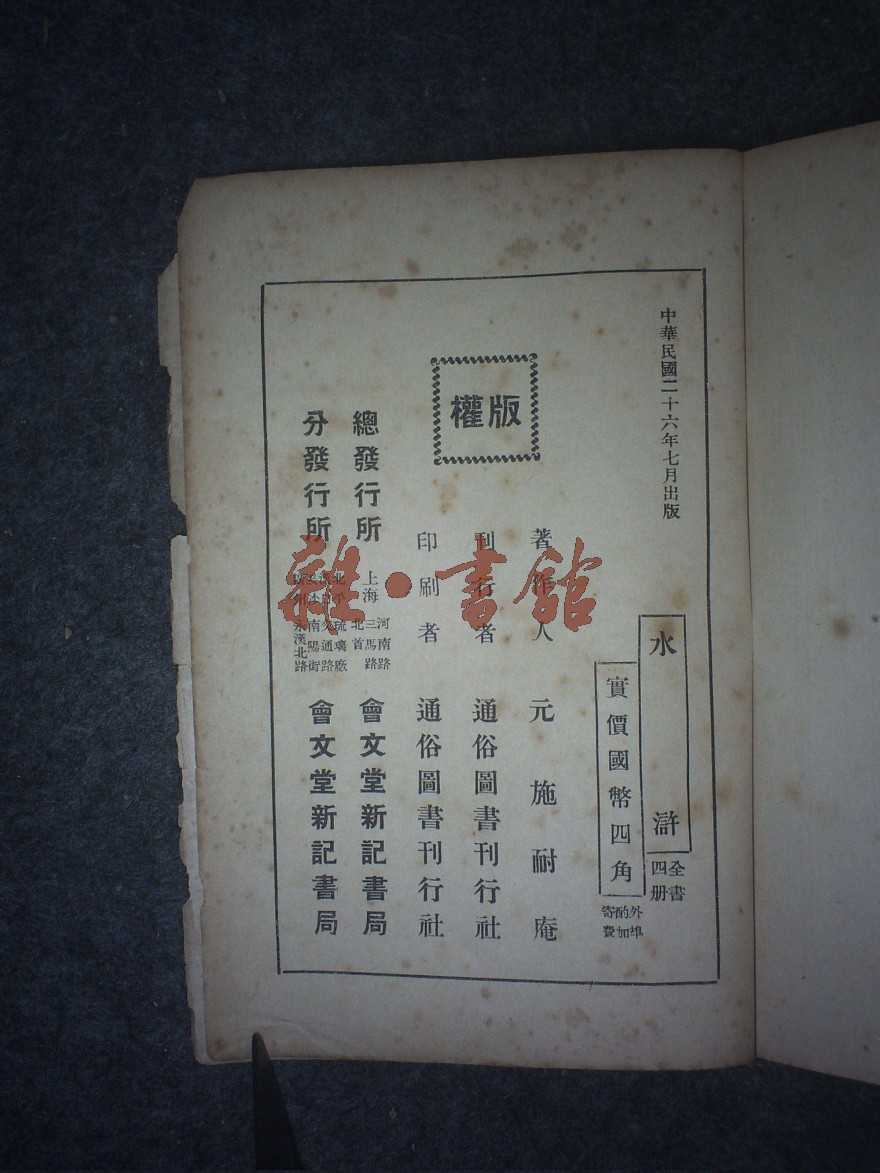 中華民國二十六年七月出版
水滸
全書四册
實價國幣四角
外埠酌加寄費
版權
著作人 元 施耐庵
刊行者 通俗圖書刊行社
印刷者 通俗圖書刊行社
總發行所 上海 河南路三馬路北首 會文堂新記書局
分發行所
北平琉璃廠
南陽街
永漢北路
會文堂新記書局
雜·書館